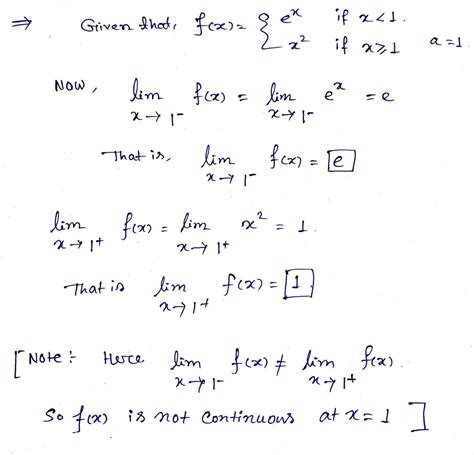 ⇒ Given that, f(x) = { e^x if x<1.
x^2 if x⩾1 a=1
Now, lim x→1^- f(x) = lim x→1^- e^x = e
That is, lim x→1^- f(x) = e
lim x→1^+ f(x) = lim x→1^+ x^2 = 1.
That is lim x→1^+ f(x) = 1
[Note:- Here lim x→1^- f(x) ≠ lim x→1^+ f(x).
So f(x) is not continuous at x=1]